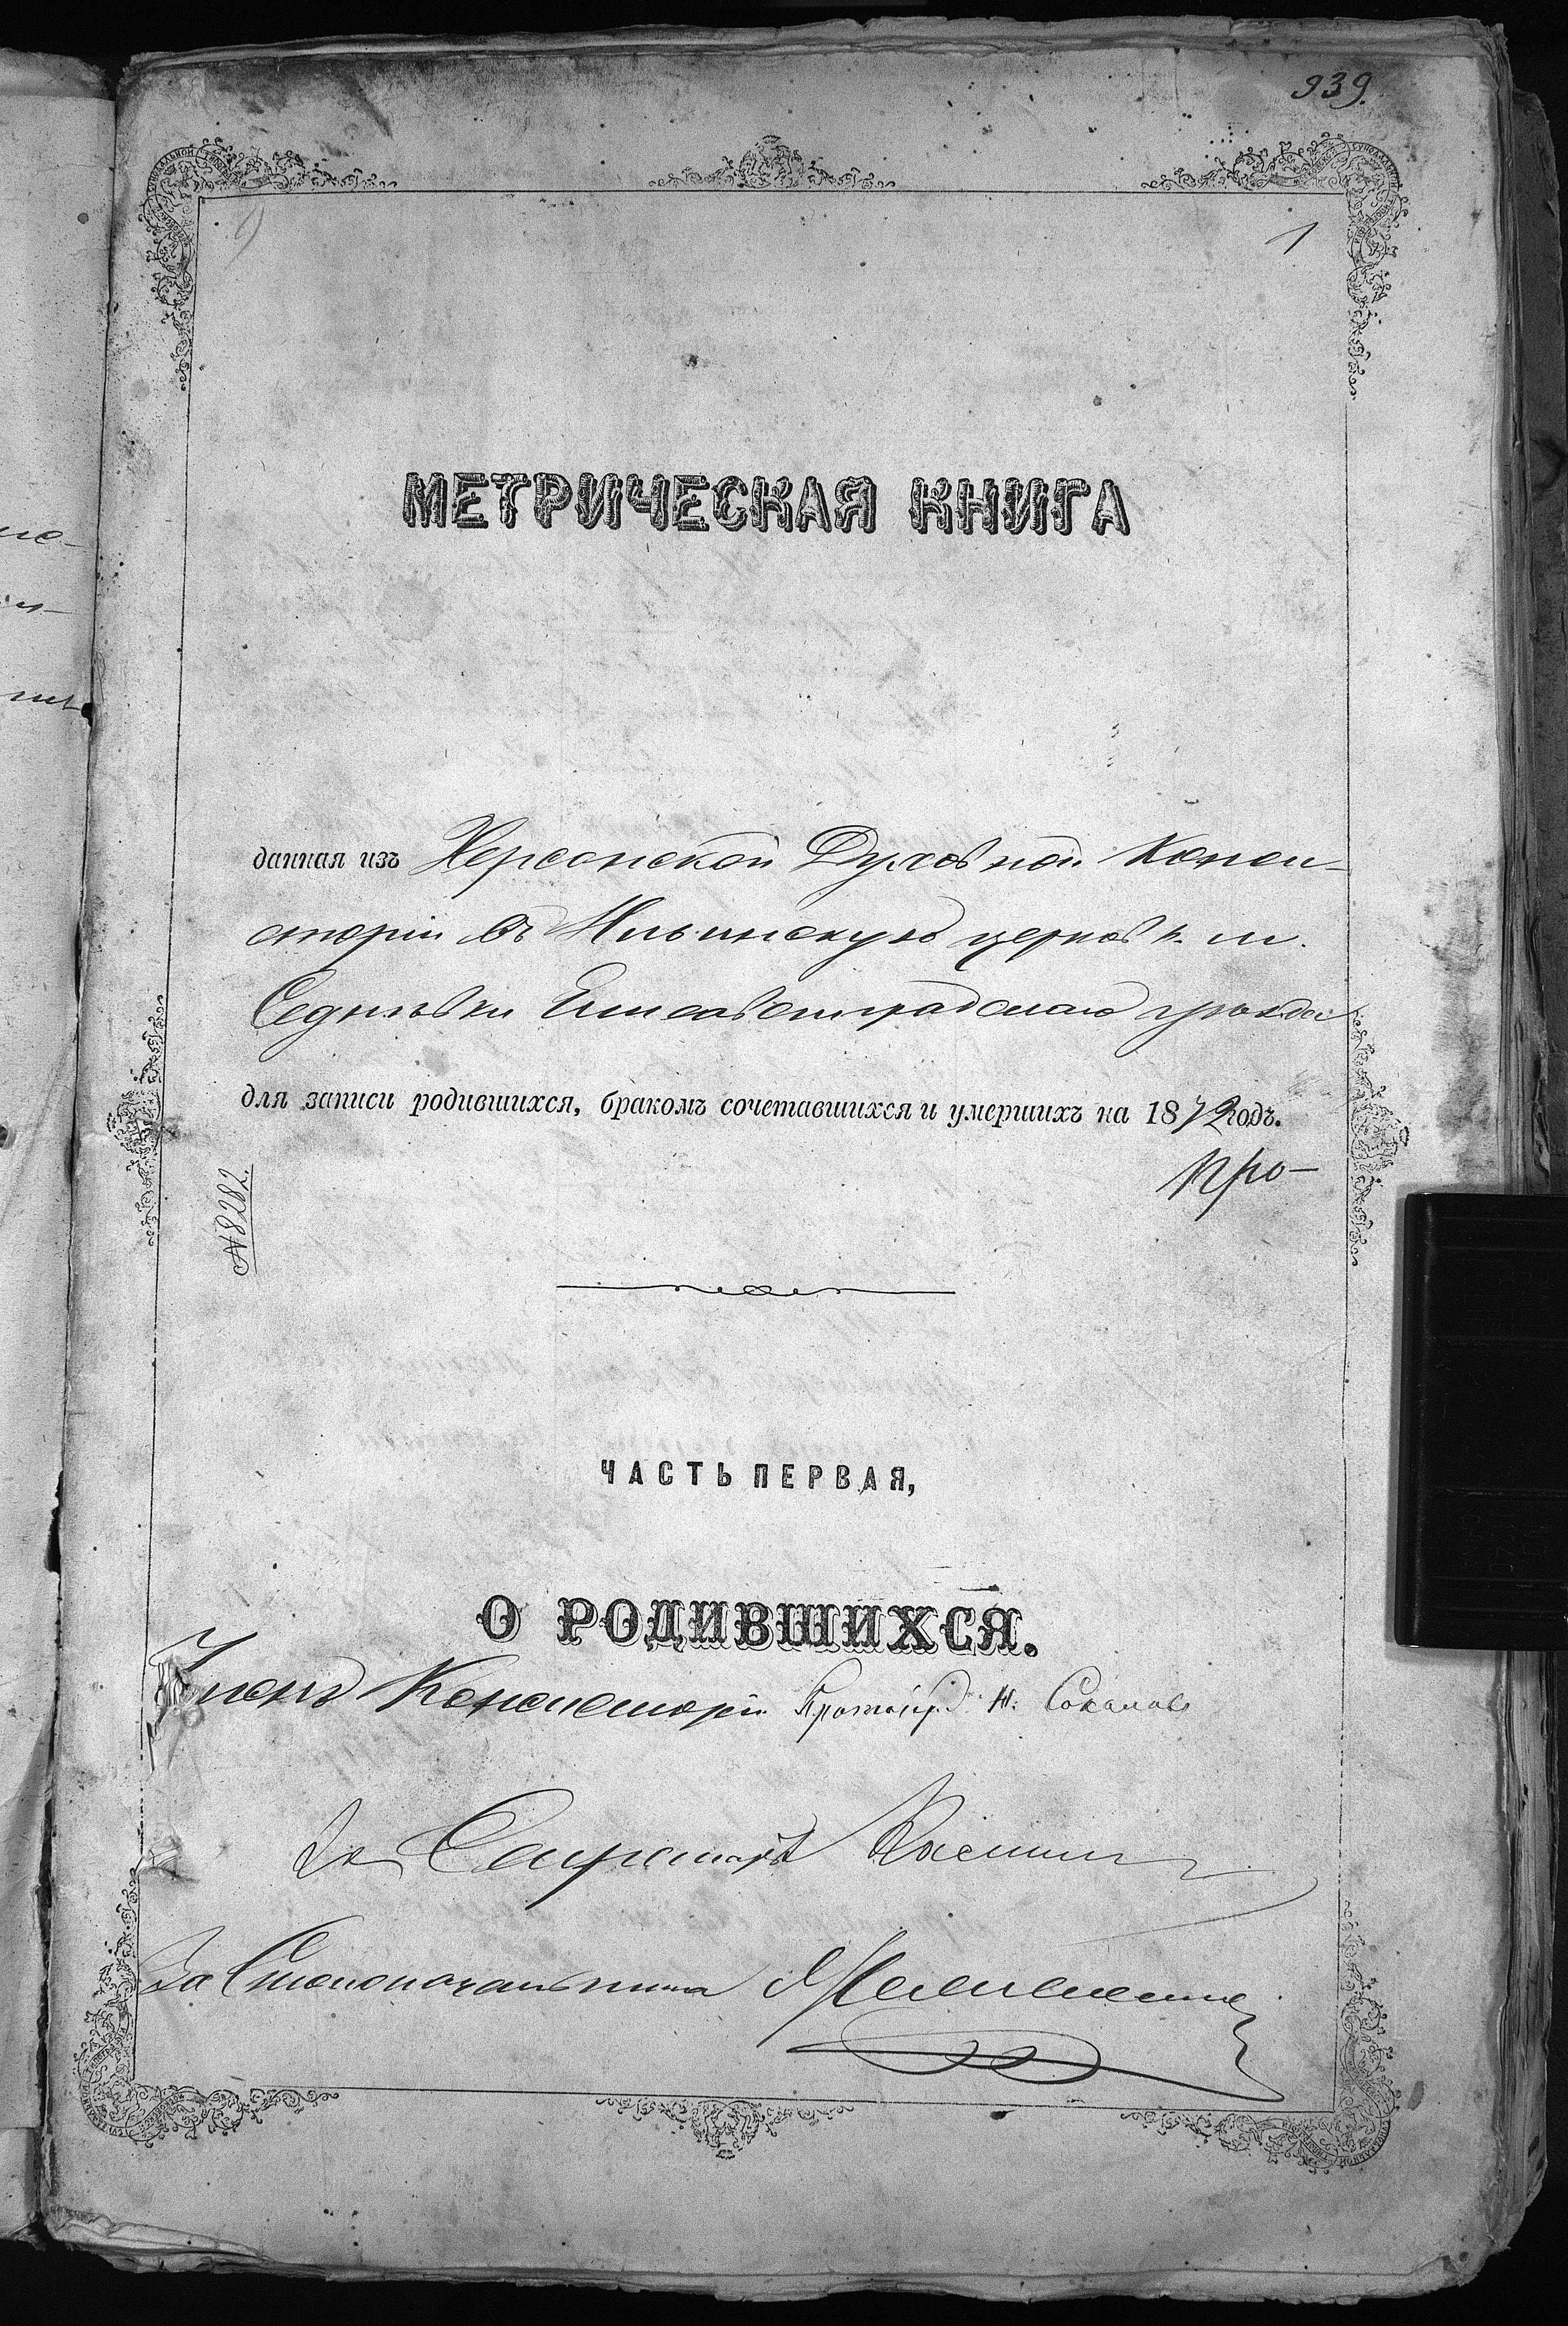 939.
1
МЕТРИЧЕСКАЯ КНИГА
данная изъ Херсонской Духовной Конси-
сторіи въ Ильинскую церковь м.
Седневки Елисаветградскаго уѣзда
для записи родившихся, бракомъ сочетавшихся и умершихъ на 1872 годъ.
Про-
№ 8282.
ЧАСТЬ ПЕРВАЯ,
О РОДИВШИХСЯ.
Членъ Консисторіи Протоіерей Н. Соколовъ
За Секретаря
За Столоначальника